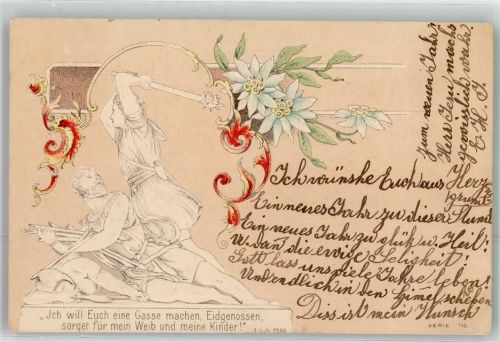 Ich wünshe Euch aus Herz
grund
Ein neues Jahr zu dieser Stund
Ein neues Jahr zu glük u. Heil!
U. dan die ewige Seligkeit!
Gott lass uns viele Jahre leben!
Und endlich in den himel scheben
Diss ist mein Wunsch
zum neuen Jahr
Herr Jesu mach's
gewisslich wahr!
E. H. J.
„Jch will Euch eine Gasse machen, Eidgenossen,
sorget für mein Weib und meine Kinder!“
Juli 1386
SERIE 110